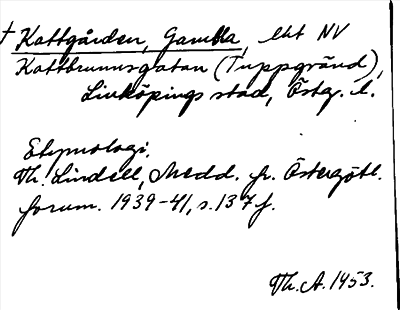 † Kattgården, Gambla, lht NV
Kattbrunnsgatan (Tuppgränd),
Linköpings stad, Östg. l.
Etymologi.
Th. Lindell, Medd. fr. Östergötl.
fornm. 1939-41, s. 137 f.
Th. A. 1953.